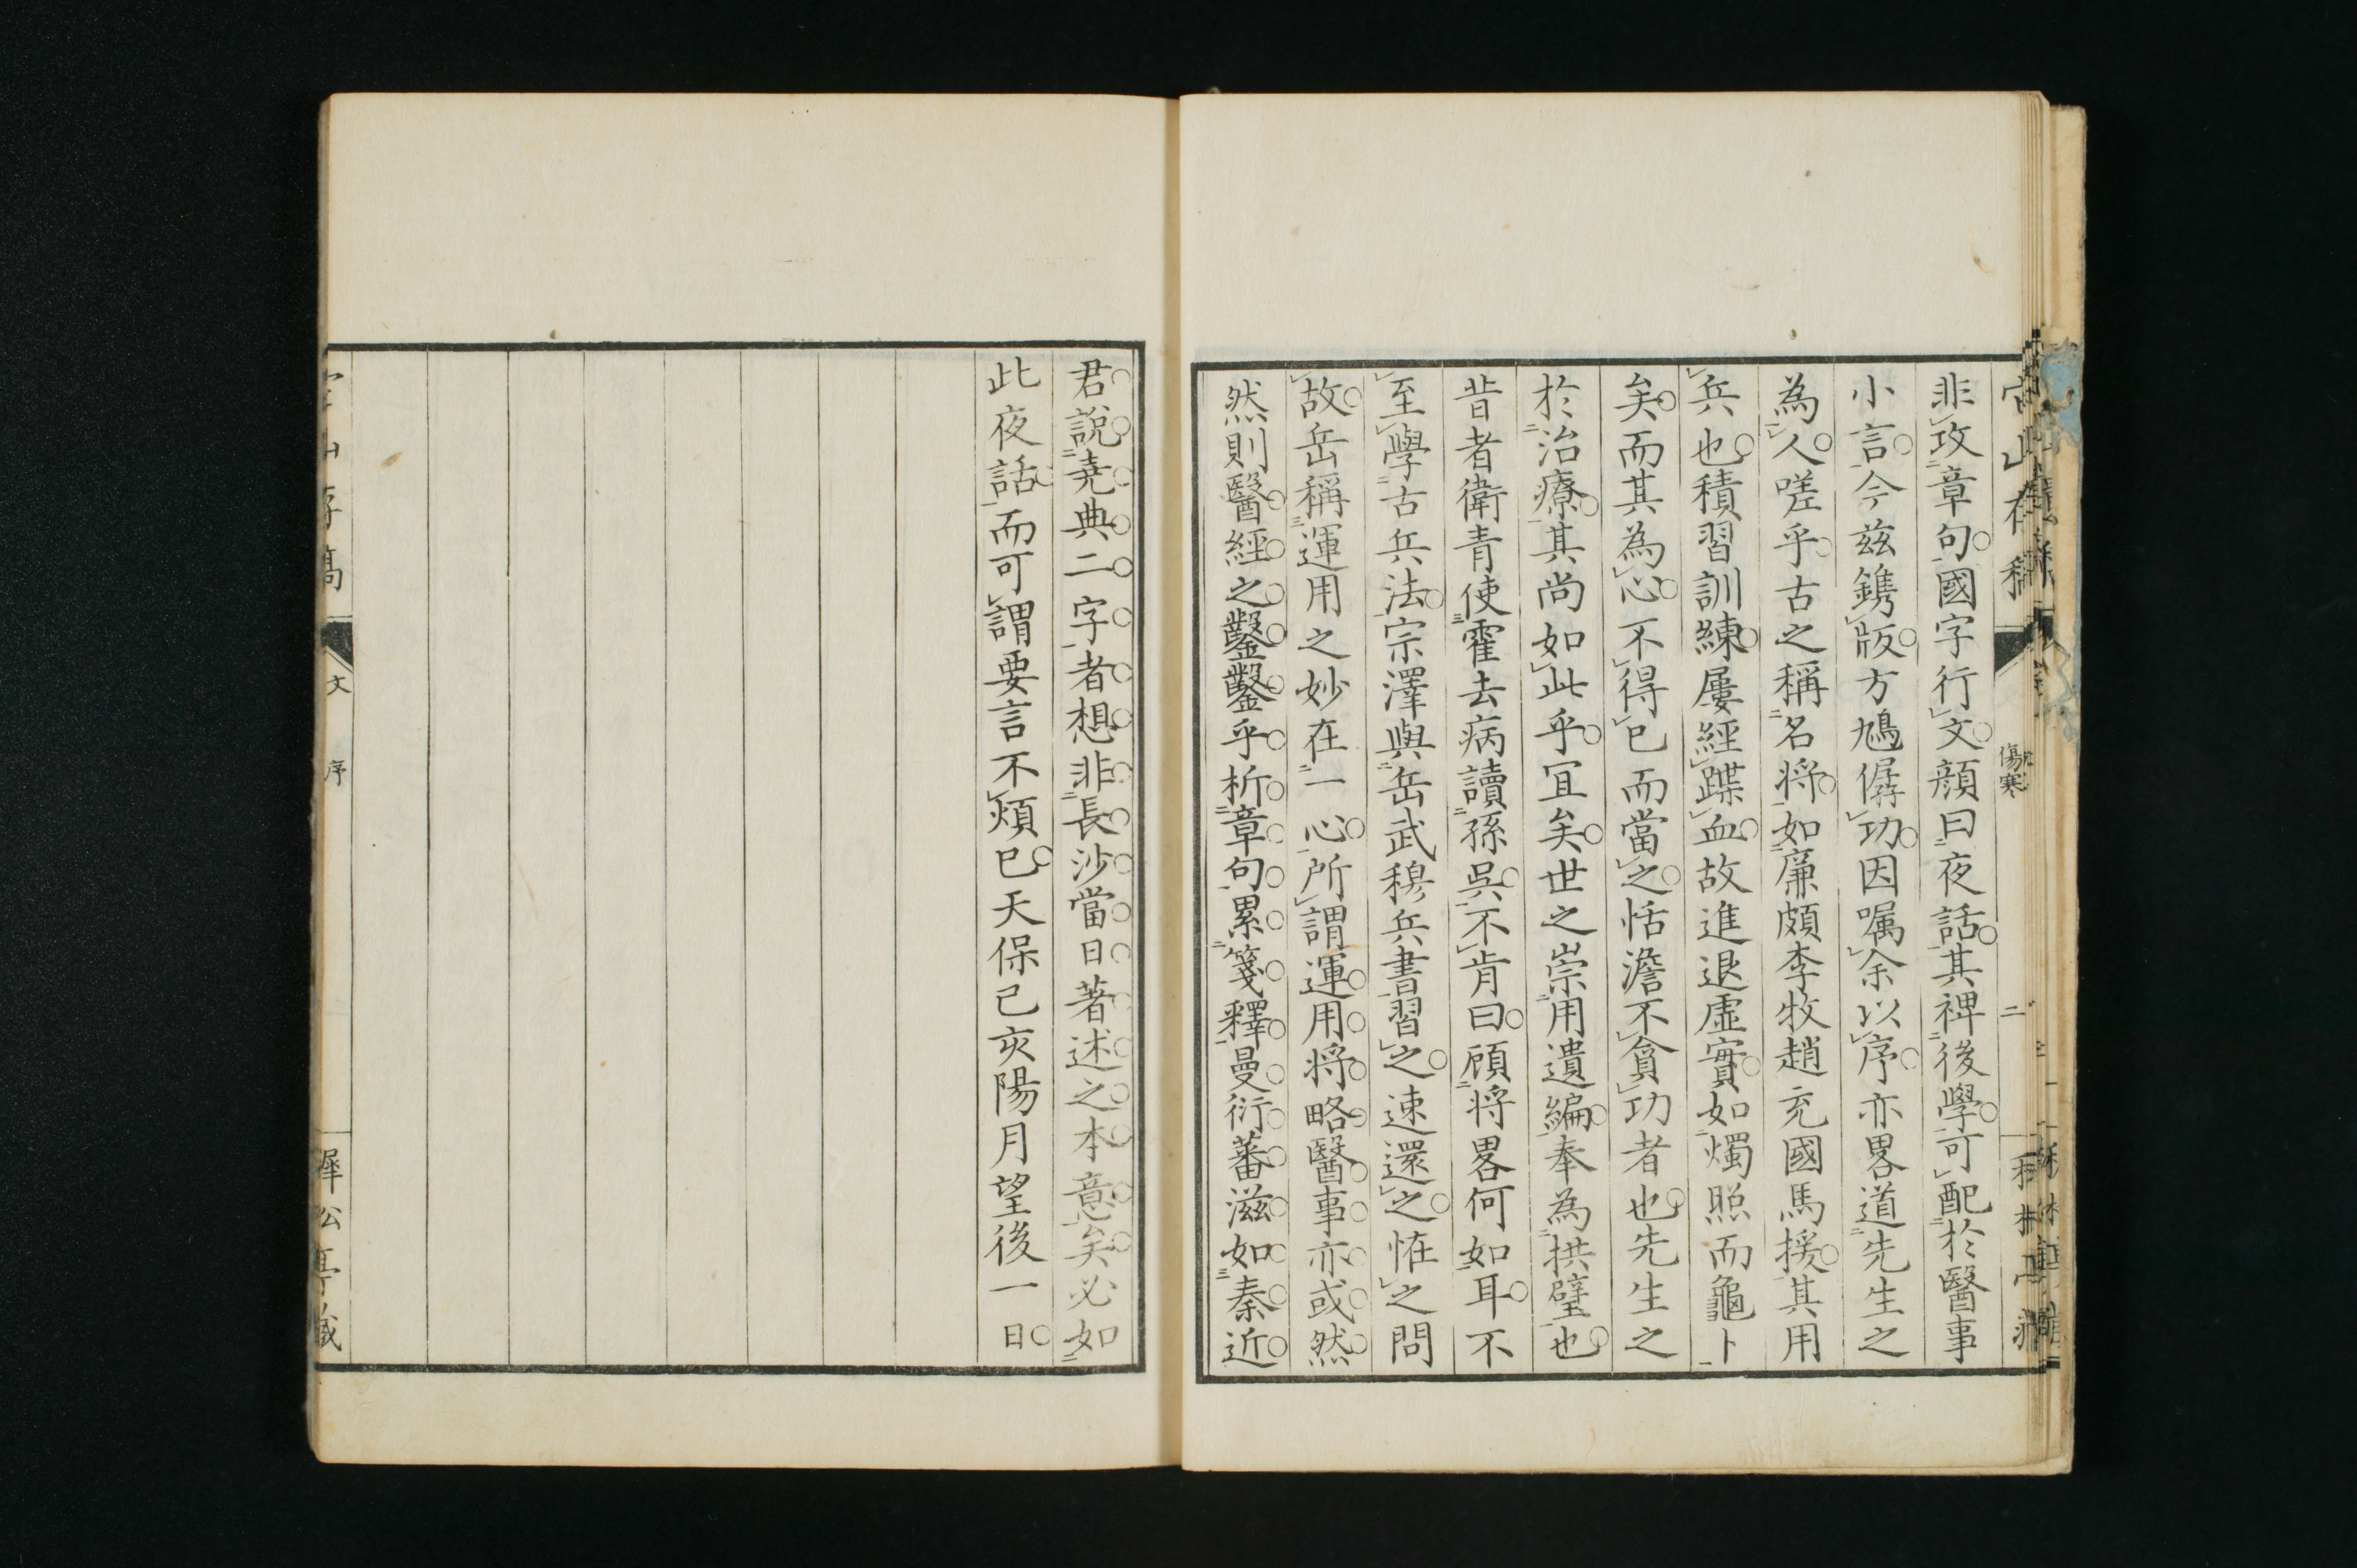 非攻章句國字行文顏曰夜話其裨後學可配於醫事
小言今茲鐫版方鳩僝功因囑余以序亦畧道先生之
為人嗟乎古之稱名將如廉頗李牧趙充國馬援其用
兵也積習訓練屢經蹀血故進退虛實如燭照而龜卜
矣而其為心不得已而當之恬澹不貪功者也先生之
於治療其尚如此乎宜矣世之崇用遺編奉為拱璧也
昔者衛青使霍去病讀孫吳不肯曰顧將畧何如耳不
至學古兵法宗澤與岳武穆兵書習之速還之恠之問
故岳稱運用之妙在一心所謂運用將略醫事亦或然
然則醫經之鑿鑿乎析章句累箋釋曼衍蕃滋如秦近
君說堯典二字者想非長沙當日著述之本意矣必如
此夜話而可謂要言不煩已天保己亥陽月望後一日
傷寒
二
文
序